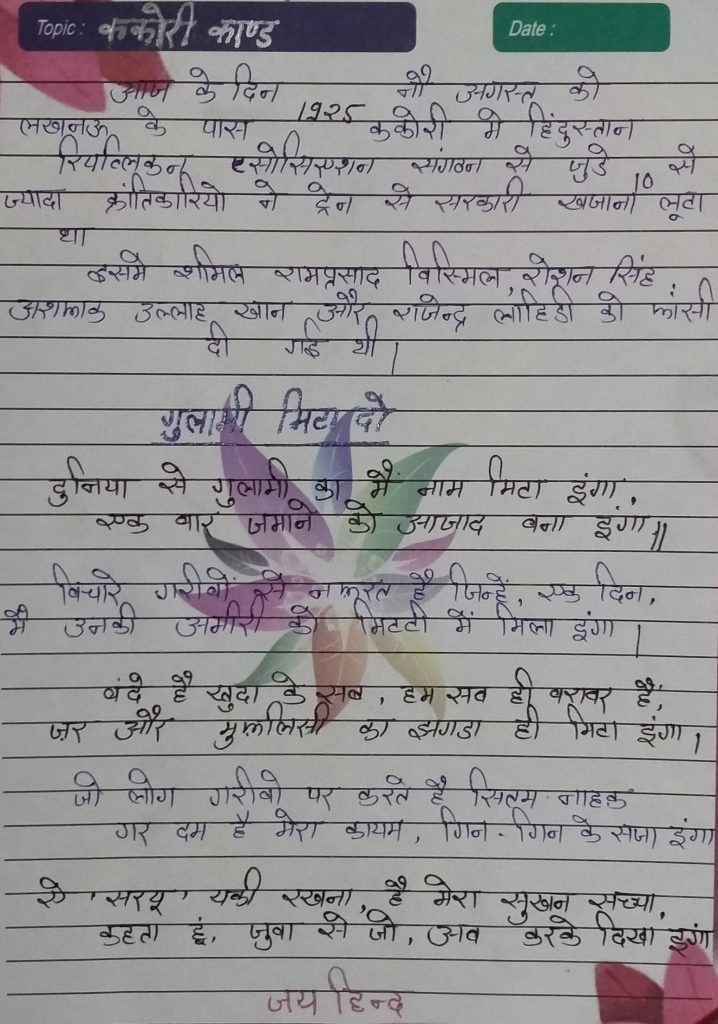 Topic: ककोरी काण्ड
Date:
आज के दिन नौ अगस्त को
लखनऊ के पास 1925 ककोरी मे हिंदुस्तान
रिपब्लिकन एसोसिएशन संगठन से जुडे 10 से
ज्यादा क्रांतिकारियो ने ट्रेन से सरकारी खजाना लूटा
था
इसमे शमिल रामप्रसाद विस्मिल, रोशन सिंह,
अशफाक उल्लाह खान और राजेन्द्र लाहिडी को फांसी
दी गई थी।
गुलामी मिटा दो
दुनिया से गुलामी का मैं नाम मिटा दूंगा,
एक वार जमाने को आजाद वना दूंगा॥
विचारे गरीवों से नफरत है जिन्हें, एक दिन,
मै उनकी अमीरी को मिटटी में मिला दूंगा।
वंदे है खुदा के सव, हम सव ही वरावर हैं,
ज़र और मुफलिसी का झगडा ही मिटा दूंगा।
जो लोग गरीवो पर करते है सितम नाहक
गर दम है मेरा कायम, गिन-गिन के सजा दूंगा
ऐ 'सरयू' यकी रखना, है मेरा सुखन सच्चा,
कहता हूं, जुवा से जो, अव करके दिखा दूंगा
जय हिन्द